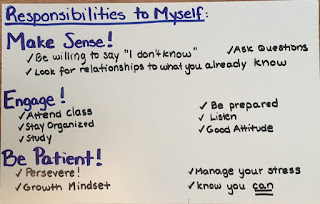 Responsibilities to Myself:
Make Sense!
✓ Be willing to say "I don't know" ✓ Ask Questions
✓ Look for relationships to what you already know
Engage!
✓ Attend class ✓ Be prepared
✓ Stay Organized ✓ Listen
✓ Study ✓ Good Attitude
Be Patient!
✓ Persevere! ✓ Manage your stress
✓ Growth Mindset ✓ Know you can